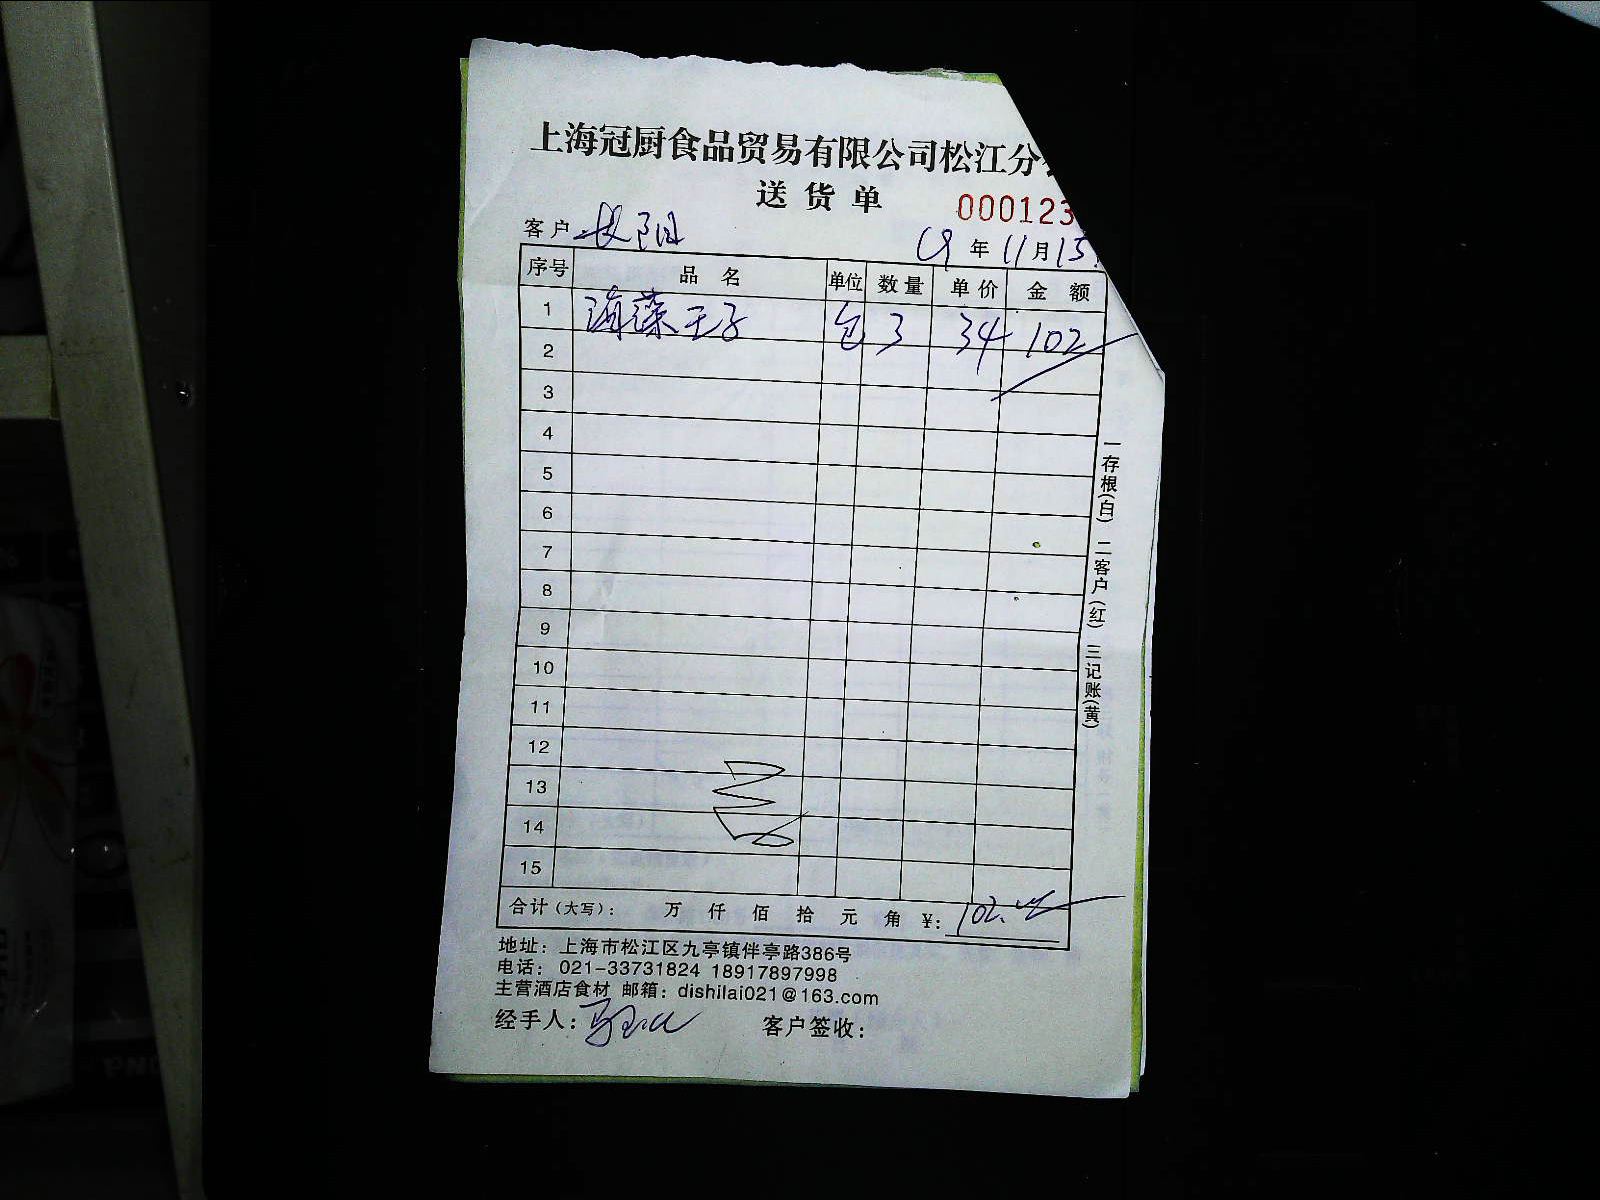 上海冠厨食品贸易有限公司松江分
送货单
000123
客户 长阳 19年11月15
序号 品名 单位 数量 单价 金额
1 海藻王子 包 3 34 102
2
3
4
5
6
7
8
9
10
11
12
13
14
15
合计(大写): 万 仟 佰 拾 元 角 ¥: 102.
地址: 上海市松江区九亭镇伴亭路386号
电话: 021-33731824 18917897998
主营酒店食材 邮箱: dishilai021@163.com
经手人: 客户签收:
一存根(白) 二客户(红) 三记账(黄)